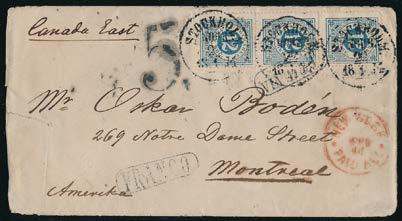 Canada East
STOCKHOLM
12
12
12
5
FRANCO
Mr Oskar Bodén
269 Notre Dame Street
Montreal
Amerika
FRANCO
NEW YORK
PAID ALL